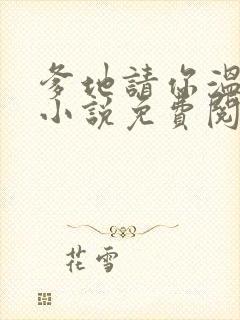 爹地請你溫
小說免費閱
花雪